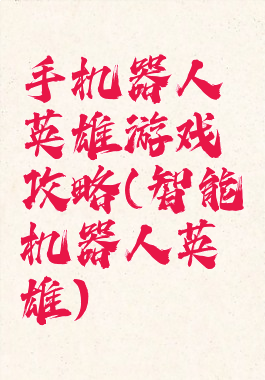 手机器人
英雄游戏
攻略(智能
机器人英
雄)